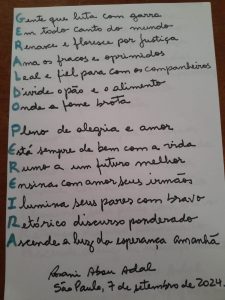 Gente que luta com garra
Em todo canto do mundo
Renasce e floresce por justiça
Ama os fracos e oprimidos
Leal e fiel para com os companheiros
Divide o pão e o alimento
Onde a fome brota
Pleno de alegria e amor
Está sempre de bem com a vida
Rumo a um futuro melhor
Ensina com amor seus irmãos
Ilumina seus pares com bravo
Retórico discurso ponderado
Ascende a luz da esperança amanhã
Rosani Abou Adal
São Paulo, 7 de setembro de 2024.